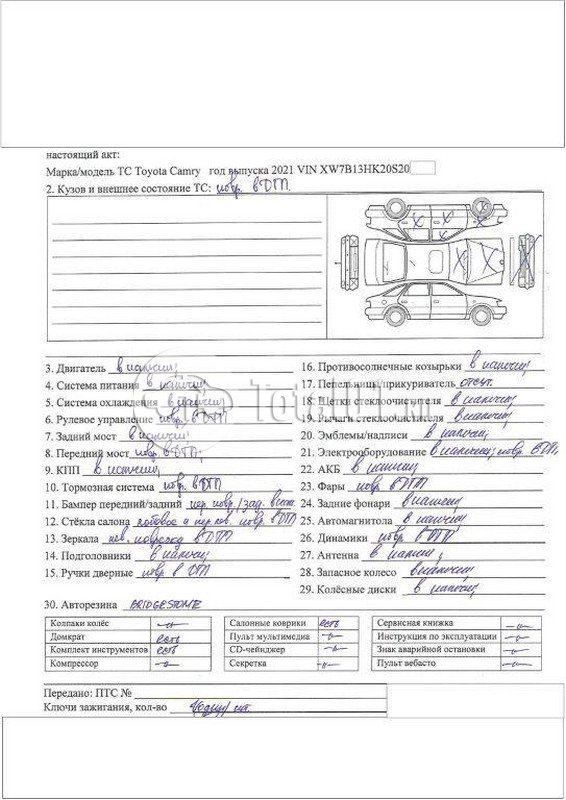 настоящий акт:
Марка/модель ТС Toyota Camry год выпуска 2021 VIN XW7B13HK20S20
2. Кузов и внешнее состояние ТС: повр. в ДТП.
3. Двигатель в наличии
4. Система питания в наличии
5. Система охлаждения в наличии
6. Рулевое управление повр. в ДТП
7. Задний мост в наличии
8. Передний мост повр. в ДТП
9. КПП в наличии
10. Тормозная система повр. в ДТП
11. Бампер передний/задний пер. повр./зад.
12. Стёкла салона лобовое и повр. в ДТП
13. Зеркала лев. в ДТП
14. Подголовники в наличии
15. Ручки дверные повр. в ДТП
16. Противосолнечные козырьки в наличии
17. Пепельницы/прикуриватель отсут.
18. Щетки стеклоочистителя в наличии
19. Рычаги стеклоочистителя в наличии
20. Эмблемы/надписи в наличии
21. Электрооборудование в наличии, повр. ДТП
22. АКБ в наличии
23. Фары повр. в ДТП
24. Задние фонари в наличии
25. Автомагнитола в наличии
26. Динамики повр. в ДТП
27. Антенна в наличии
28. Запасное колесо в наличии
29. Колёсные диски в наличии
30. Авторезина BRIDGESTONE
Колпаки колёс -"- Салонные коврики есть Сервисная книжка -"-
Домкрат есть Пульт мультимедиа -"- Инструкция по эксплуатации -"-
Комплект инструментов есть CD-чейнджер -"- Знак аварийной остановки -"-
Компрессор -"- Секретка -"- Пульт вебасто -"-
Передано: ПТС №
Ключи зажигания, кол-во 1(один) шт.